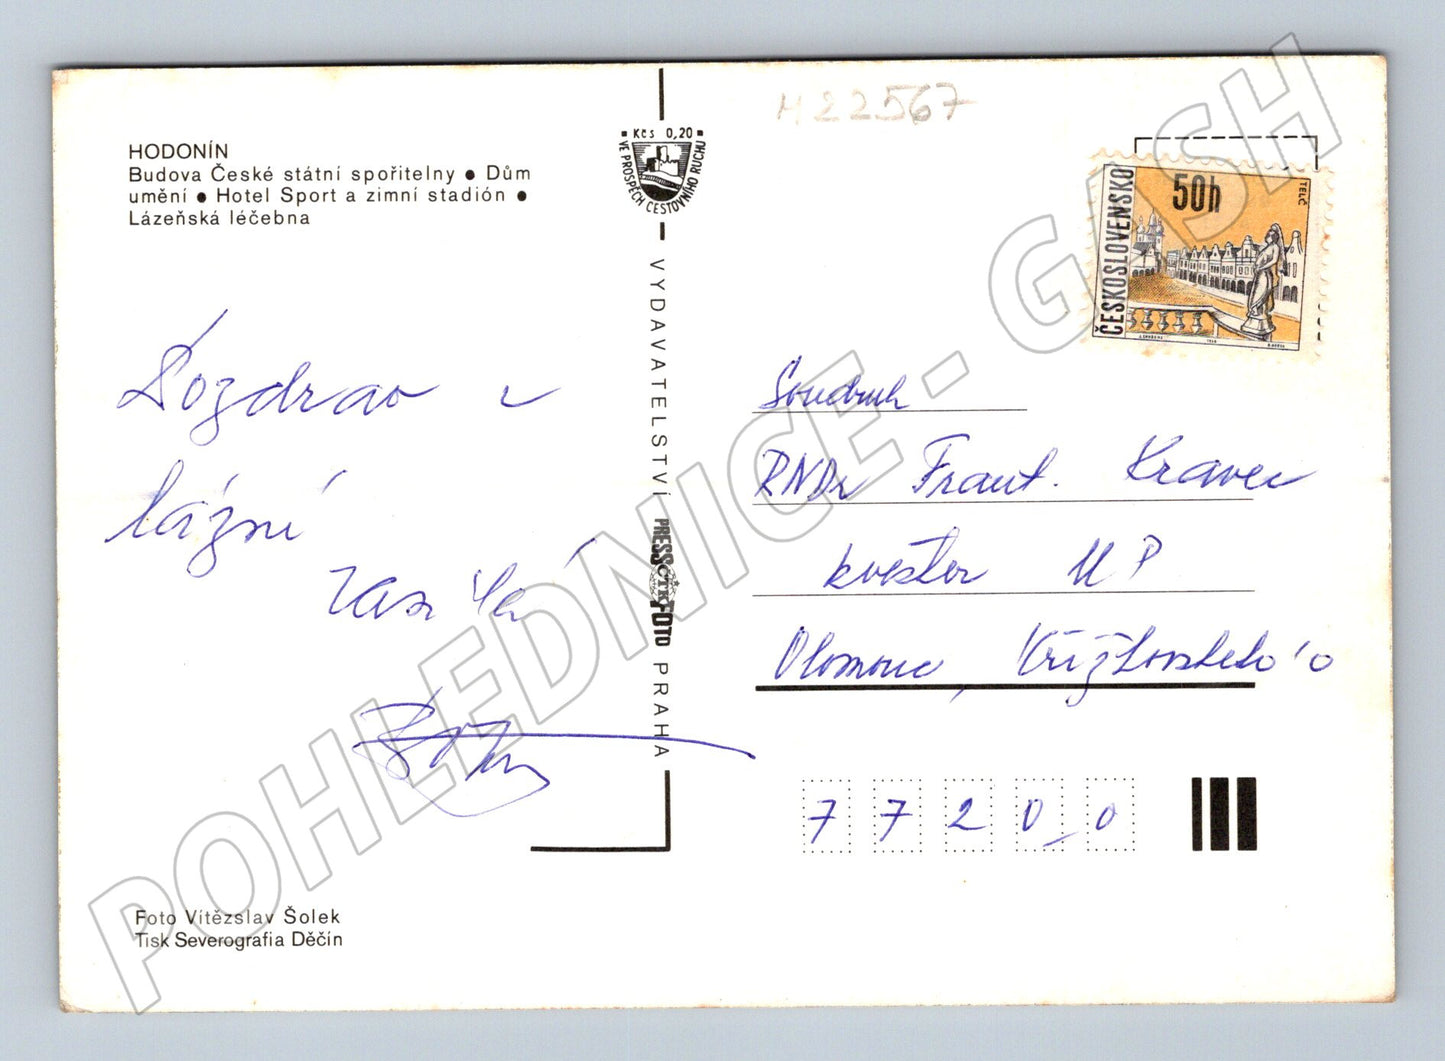 H22567
HODONÍN
Budova České státní spořitelny ● Dům
umění ● Hotel Sport a zimní stadión ●
Lázeňská léčebna
Kčs 0,20
VE PROSPĚCH CESTOVNÍHO RUCHU
VYDAVATELSTVÍ PRESSFOTO PRAHA
ČTK
ČESKOSLOVENSKO
50h
TELČ
Pozdrav z
lázní
zasílá
Soudruh
RNDr Frant. Kravec
kvestor UP
Olomouc, Křížkovského
77200
Foto Vítězslav Šolek
Tisk Severografia Děčín
POHLEDNICE - GASH